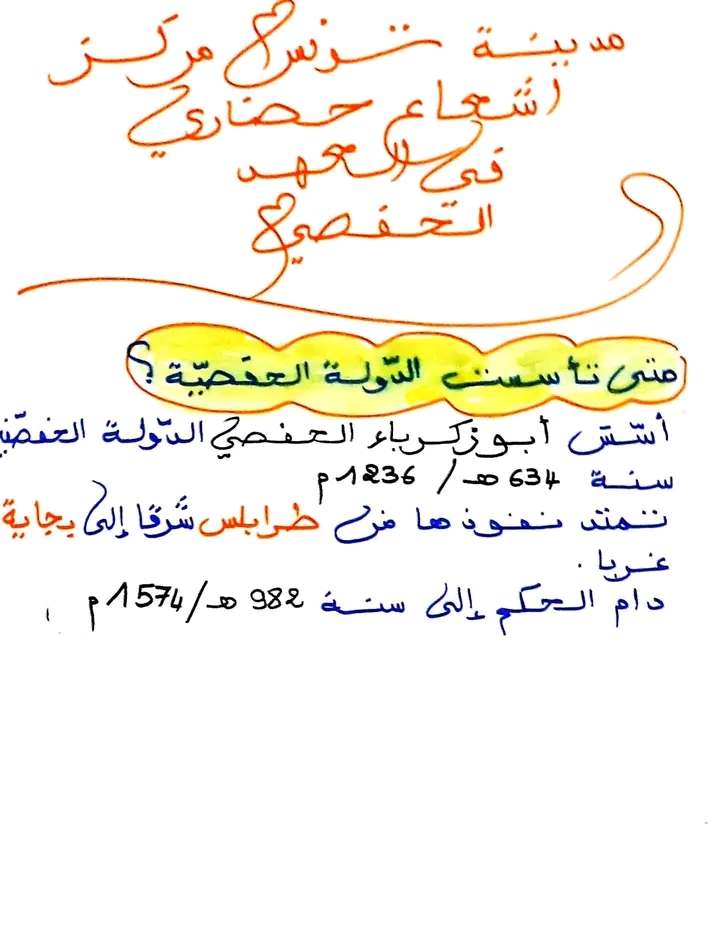 مدينة تونس مركز
اشعاع حضاري
في العهد
الحفصي
متى تأسست الدّولة الحفصيّة ؟
أسّس أبو زكرياء الحفصي الدّولة الحفصيّة
سنة 634 هـ / 1236 م
تمتد نفوذها من طرابلس شرقا إلى بجاية
غربا .
دام الحكم إلى سنة 982 هـ/1574 م